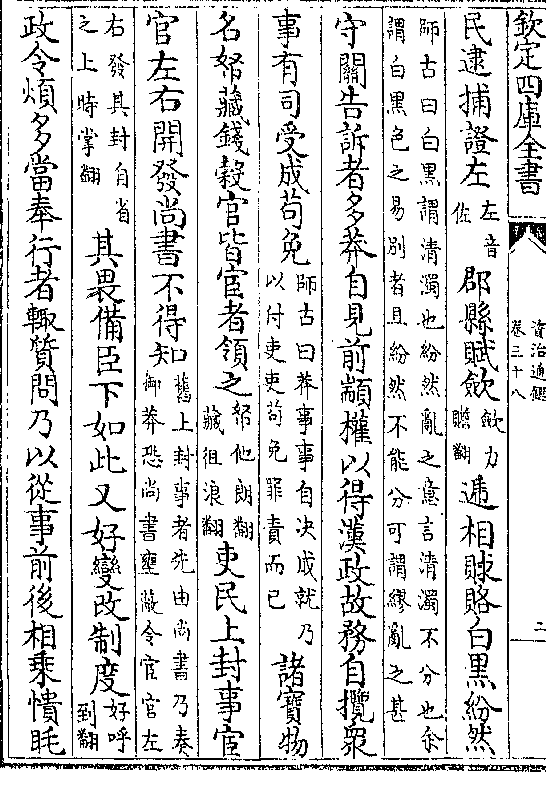 欽定四庫全書
資治通鑑
卷三十八
二
民逮捕證左
左音
佐
郡縣賦斂
斂力
贍翻
遞相賕賂白黒紛然
師古曰白黒謂清濁也紛然亂之意言清濁不分也余
謂白黒色之易别者且紛然不能分可謂繆亂之甚
守闗告訴者多莽自見前顓權以得漢政故務自攬衆
事有司受成苟免
師古曰莽事事自決成就乃
以付吏吏苟免罪責而已
諸寶物
名帑藏錢穀官皆宦者領之
帑他朗翻
藏徂浪翻
吏民上封事宦
官左右開發尚書不得知
舊上封事者先由尚書乃奏
御莽恐尚書壅蔽令宦官左
右發其封自省
之上時掌翻
其畏備臣下如此又好變改制度
好呼
到翻
政令煩多當奉行者輙質問乃以從事前後相乗憒眊